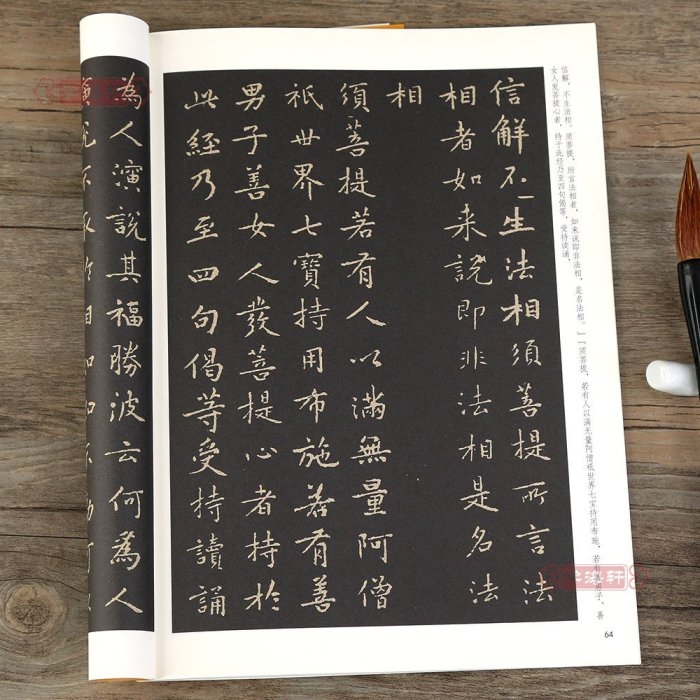 信解，不生法相。须菩提，所言法相者，如来说即非法相，是名法相。」「须菩提，若有人以满无量阿僧祇世界七宝持用布施，若有善男子、善
女人发菩提心者，持于此经乃至四句偈等，受持读诵，
信解不生法相須菩提所言法
相者如来說即非法相是名法
相
須菩提若有人以滿無量阿僧
祇世界七寶持用布施若有善
男子善女人發菩提心者持於
此經乃至四句偈等受持讀誦
為人演說其福勝彼云何為人
64